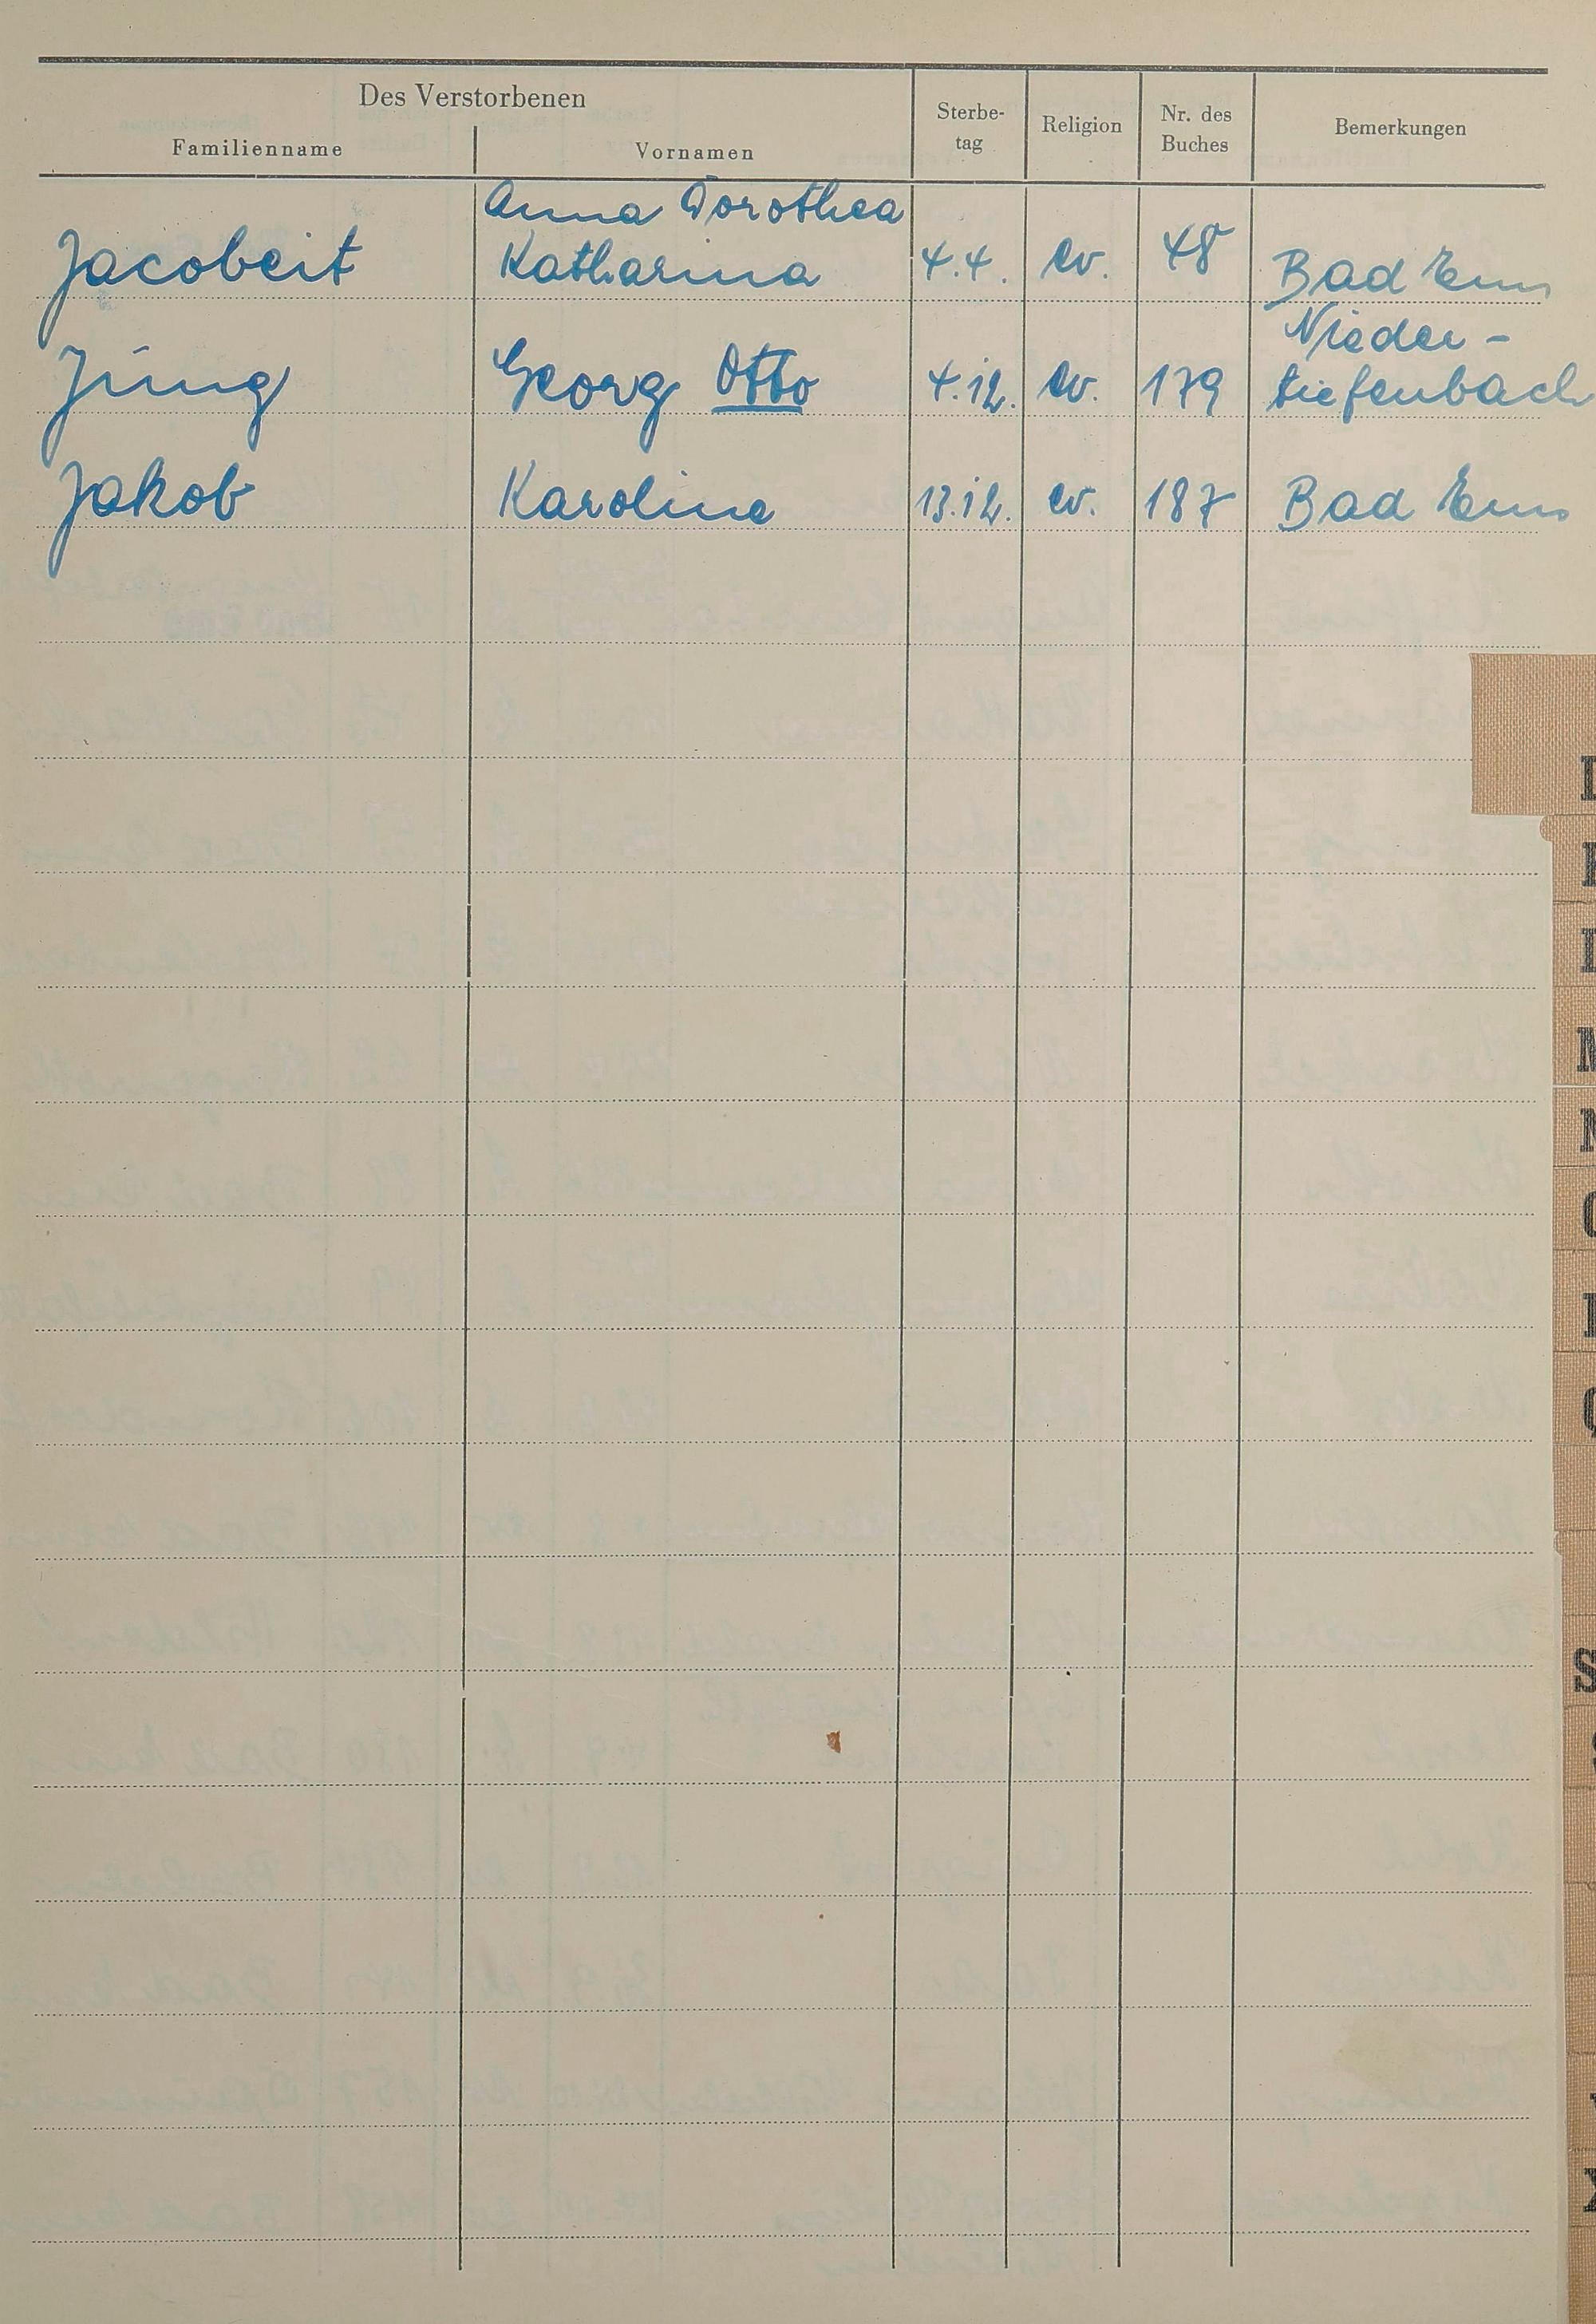 Des Verstorbenen
Familienname Vornamen Sterbe-tag Religion Nr. des Buches Bemerkungen
Anna Dorothea
Jacobeit Katharina 4.4. ev. 48 Bad Ems
Nieder-
Jung Georg Otto 4.12. ev. 179 tiefenbach
Jakob Karoline 13.12. ev. 187 Bad Ems